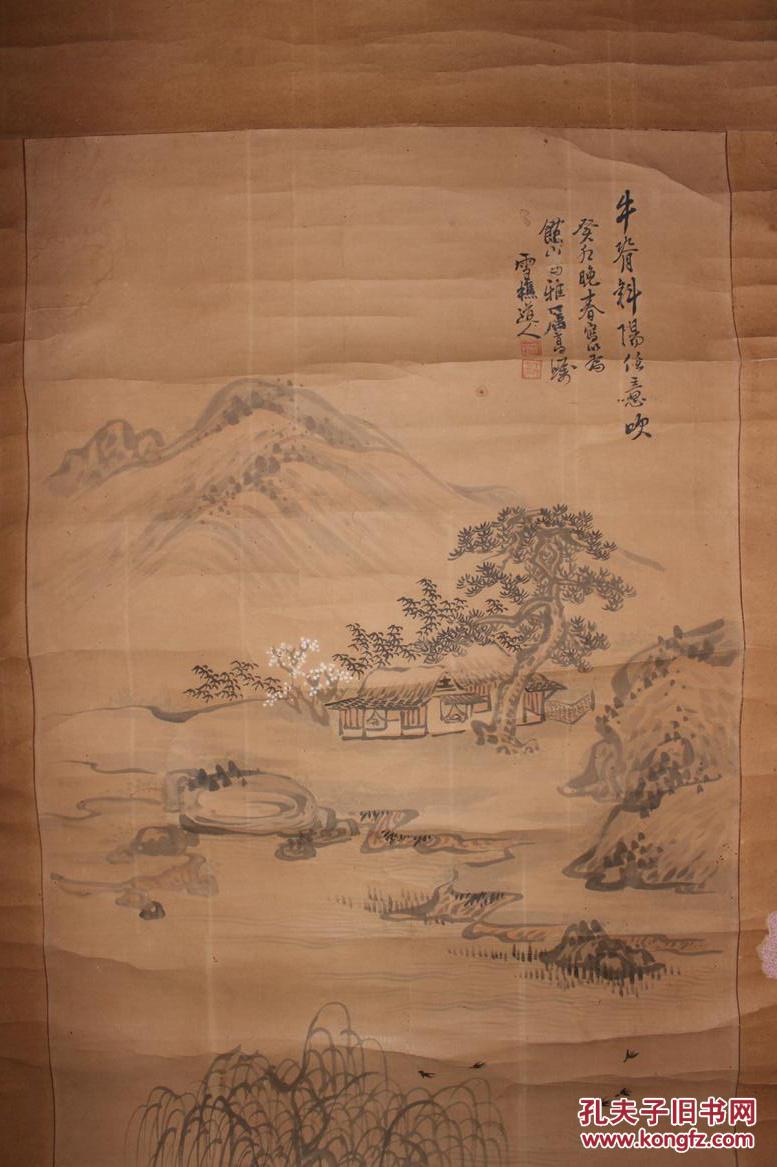 牛背斜陽任意吹
癸丑晚春寫以為
山 雅屬
雪樵道人
孔夫子旧书网
www.kongfz.com